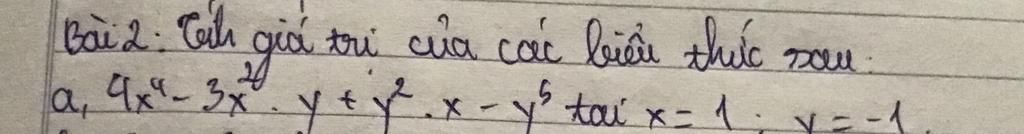 Bài 2: Tính giá trị của các biểu thức sau:
a, 4x⁴ - 3x². y + y². x - y⁵ tại x = 1 ; y = -1.